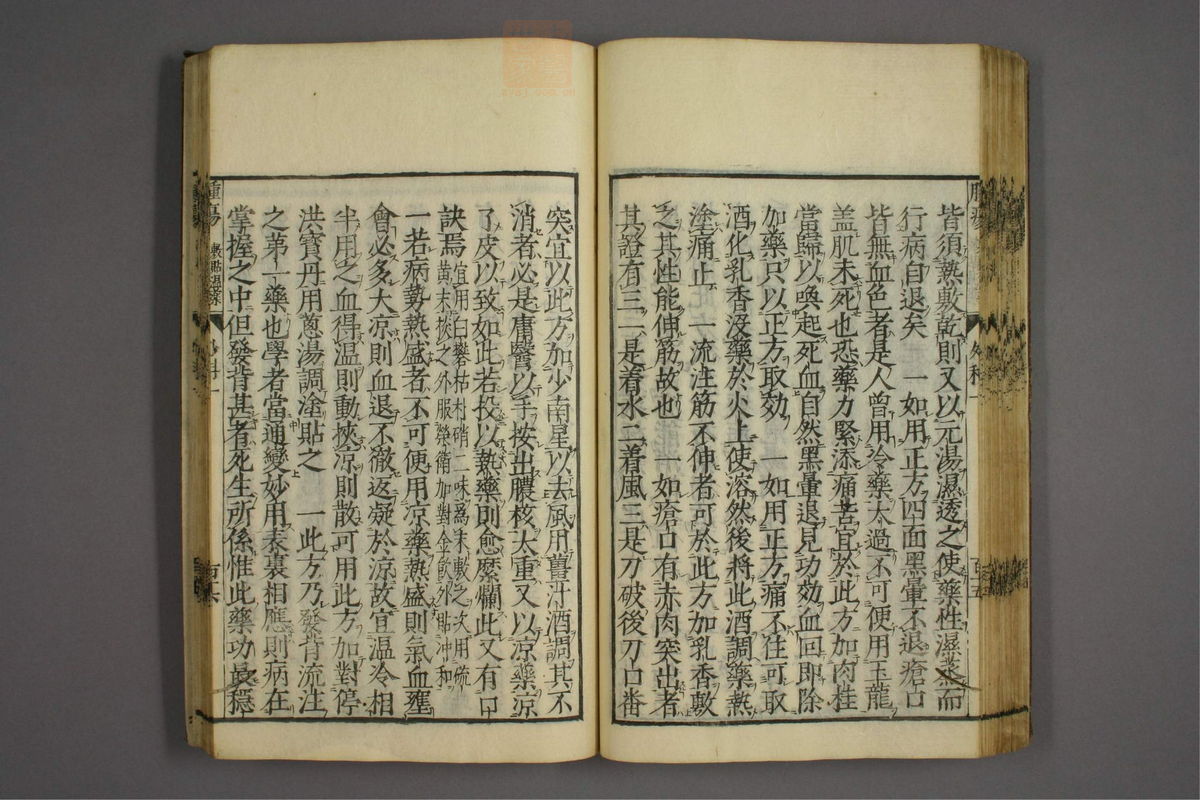 皆須熱敷乾則又以元湯濕透之使藥性濕蒸而
行病自退矣　一如用正方四面黑暈不退瘡口
皆無血色者是人曾用冷藥太過不可便用玉龍
盖肌未死也恐藥力緊添痛苦宜於此方加肉桂
當歸以喚起死血自然黑暈退見功效血回即除
加藥只以正方取効　一如用正方痛不住可取
酒化乳香沒藥於火上使溶然後將此酒調藥熱
塗痛止　一流注筋不伸者可於此方加乳香敷
之其性能伸筋故也　一如瘡口有赤肉突出者
其證有三一是着水二着風三是刀破後刀口番
突宜以此方加少南星以去風用薑汁酒調其不
消者必是庸醫以手按出膿核太重又以凉藥凉
了皮以致如此若投以熱藥則愈糜爛此又有口
訣焉宜用白礬枯朴硝二味爲末敷之次用硫
黄末摻之外服榮衛加對金飲外貼冲和
一若病勢熱盛者不可便用凉藥熱盛則氣血壅
會必多大凉則血退不徹返凝於凉故宜温冷相
半用之血得温則動挾凉則散可用此方加對停
洪寶丹用葱湯調塗貼之　一此方乃發背流注
之苐一藥也學者當通變妙用表裏相應則病在
掌握之中但發背甚者死生所係惟此藥功最穩
外科一